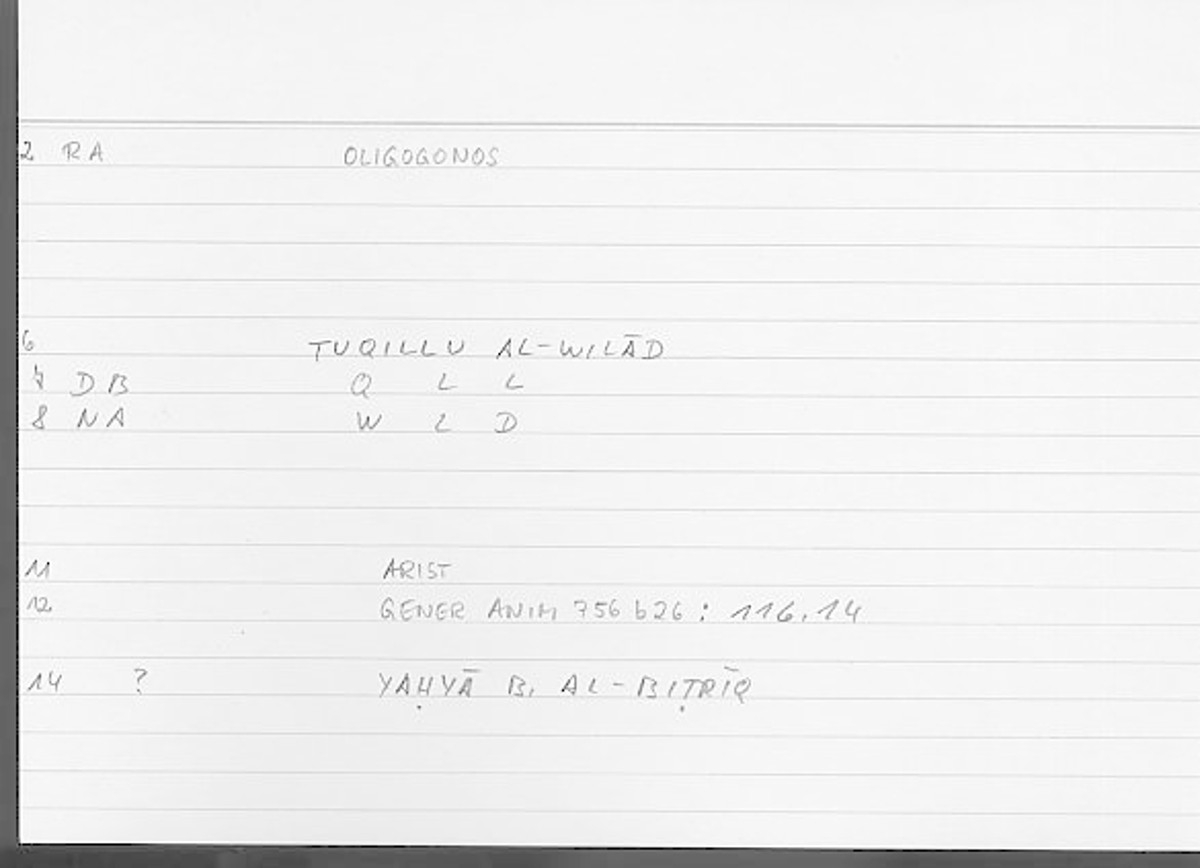 2 RA OLIGOGONOS
6 TUQILLU AL-WILĀD
7 DB Q L L
8 NA W L D
11 ARIST
12 GENER ANIM 756 b26 : 116,14
14 ? YAḤYĀ B. AL-BIṬRĪQ